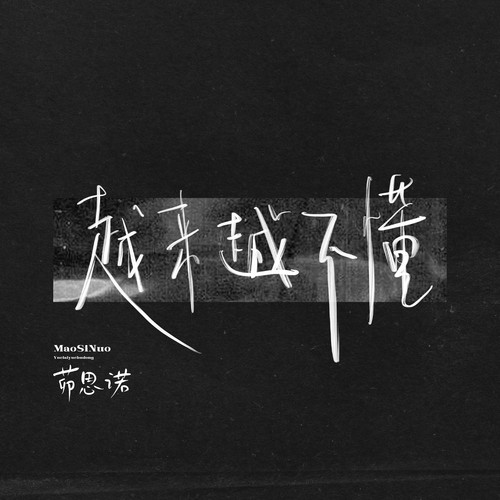 越来越不懂
MaoSiNuo
Yuelaiyuebudong
茆思诺